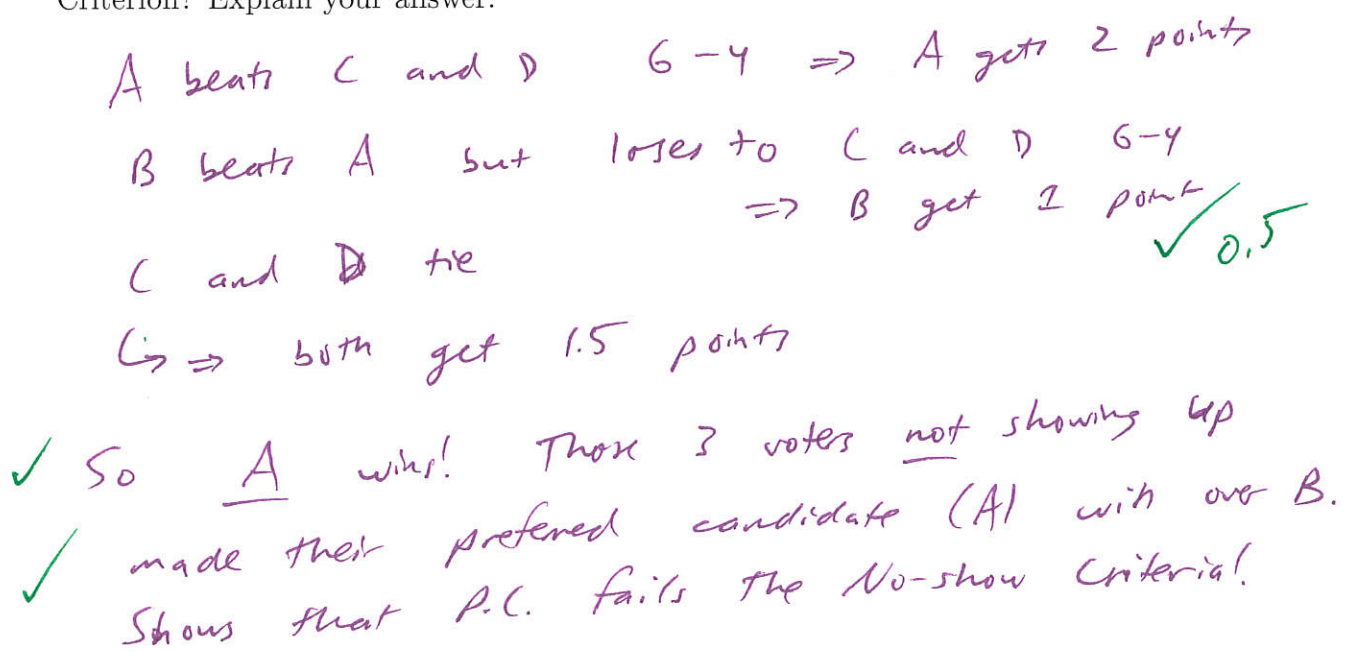 Criterion? Explain your answer.
A beats C and D 6-4 => A gets 2 points
B beats A but loses to C and D 6-4
=> B get 1 point
✓ 0.5
C and D tie
↳ => both get 1.5 points
✓ So A wins! Those 3 voters not showing up
✓ made their prefered candidate (A) win over B.
Shows that P.C. fails the No-show Criteria!